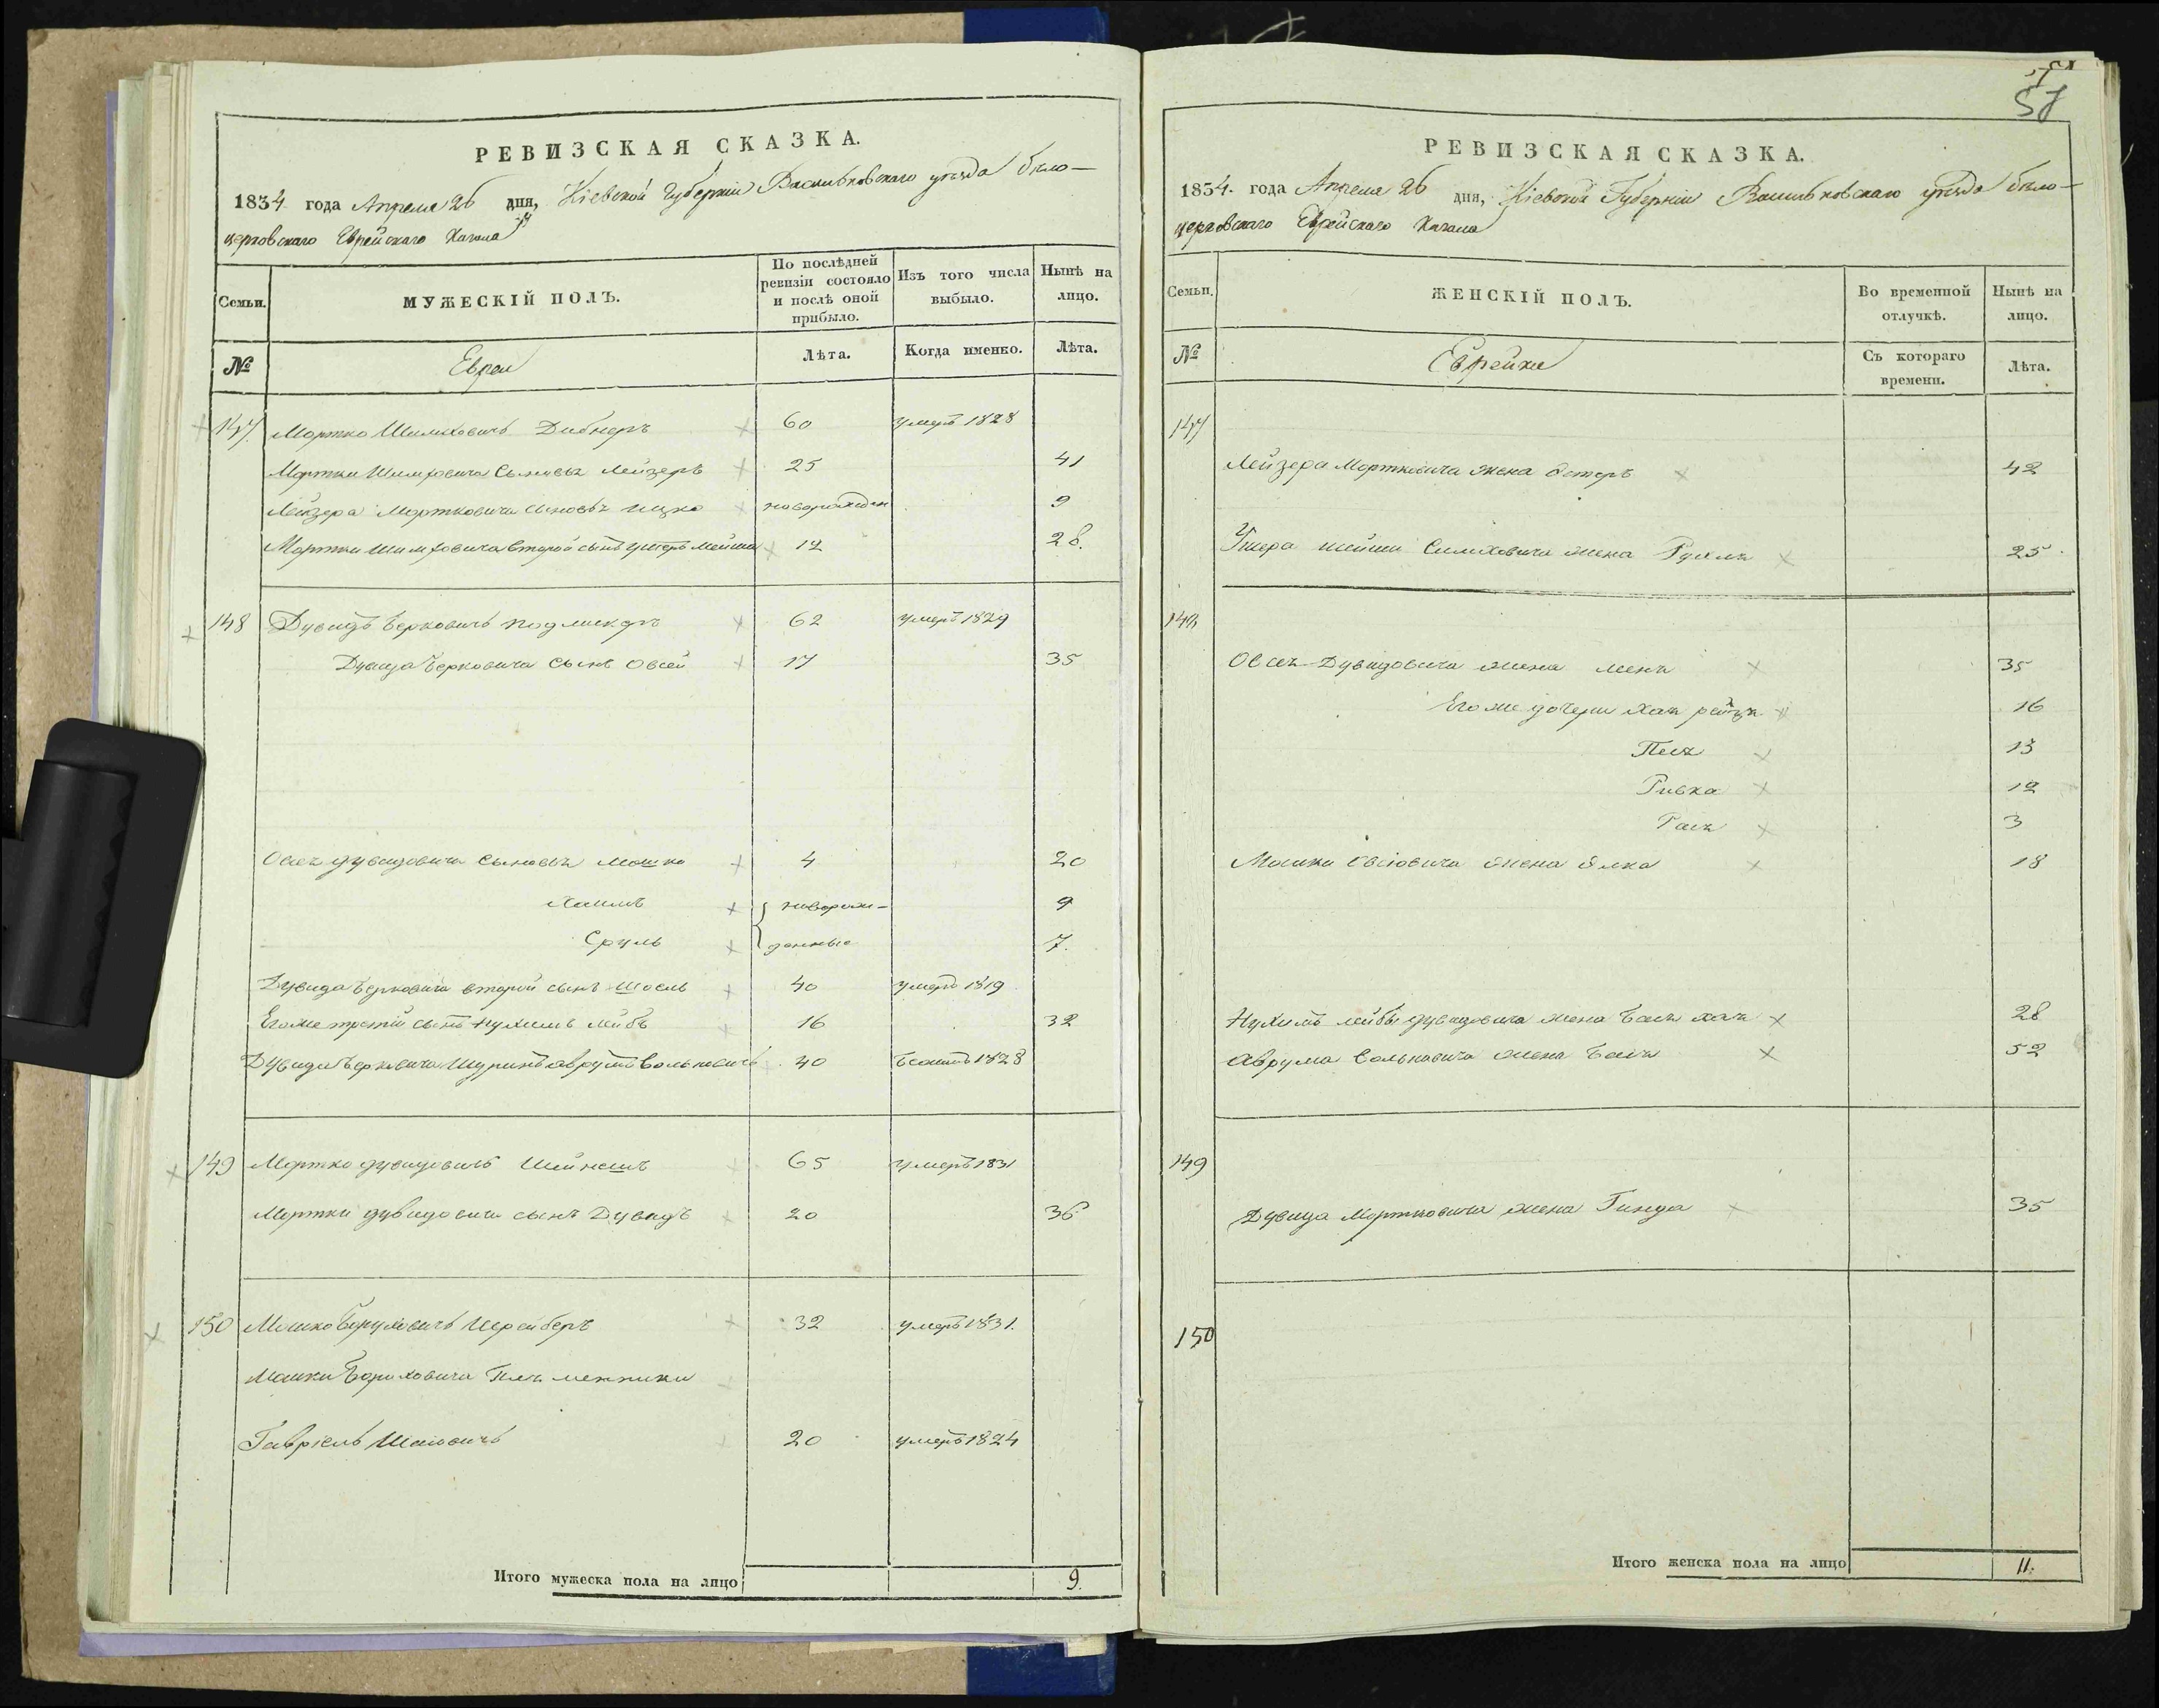 РЕВИЗСКАЯ СКАЗКА.
1834 года Апреля 26 дня, Кіевской Губерніи Васильковскаго уѣзда бѣло-
церковскаго Еврейскаго Кагала
Семьи.
МУЖЕСКІЙ ПОЛЪ.
По послѣдней ревизіи состояло и послѣ оной прибыло.
Изъ того числа выбыло.
Нынѣ на лицо.
№
Евреи
Лѣта.
Когда именно.
Лѣта.
147 Мортко Шимховичъ 60 умеръ 1828
Мортки Шимховича сыновья Лейзеръ 25 41
Лейзера Мортковича сыновья Ицко новорожден 9
Мортки Шимховича второй сынъ Мейша 12 28.
148 Дувидъ Берковичъ 62 умеръ 1829
Дувида Берковича сынъ Овсей 17 35
Овсея Дувидовича сыновья Мошко 4 20
Хаимъ новорож- 9
Сруль денные 7.
Дувида Берковича второй сынъ Шоель 40 умеръ 1819
Егоже третій сынъ Нухимъ Лейбъ 16 32
Дувида Берковича Шуринъ Аврумъ Волковичъ 40 1828
149 Мортко Дувидовичъ 65 умеръ 1831
Мортки Дувидовича сынъ Дувидъ 20 36
150 Мошко Борухович Шрейберъ 32 умеръ 1831.
Мошки Боруховича Племенники
Гавріель Шаіовичъ 20 умеръ 1824
Итого мужеска пола на лицо 9.
57
РЕВИЗСКАЯ СКАЗКА.
1834. года Апреля 26 дня, Кіевской Губерніи Васильковскаго уѣзда бѣло-
церковскаго Еврейскаго Кагала
Семьи.
ЖЕНСКІЙ ПОЛЪ.
Во временной отлучкѣ.
Нынѣ на лицо.
№
Еврейки
Съ котораго времени.
Лѣта.
147
Лейзера Мортковича жена Эстеръ 42
жена Рухля 25.
148
Овсея Дувидовича жена 35
Егоже дочери Хая рейзя 16
Песя 13
Ривка 12
Гася 3
Мошки Овсіовича жена Элка 18
Нухимъ Лейбы Дувидовича жена Бася Хая 28
Аврума Вольковича жена Бася 52
149
Дувида Мортковича жена Гинда 35
150
Итого женска пола на лицо 11.